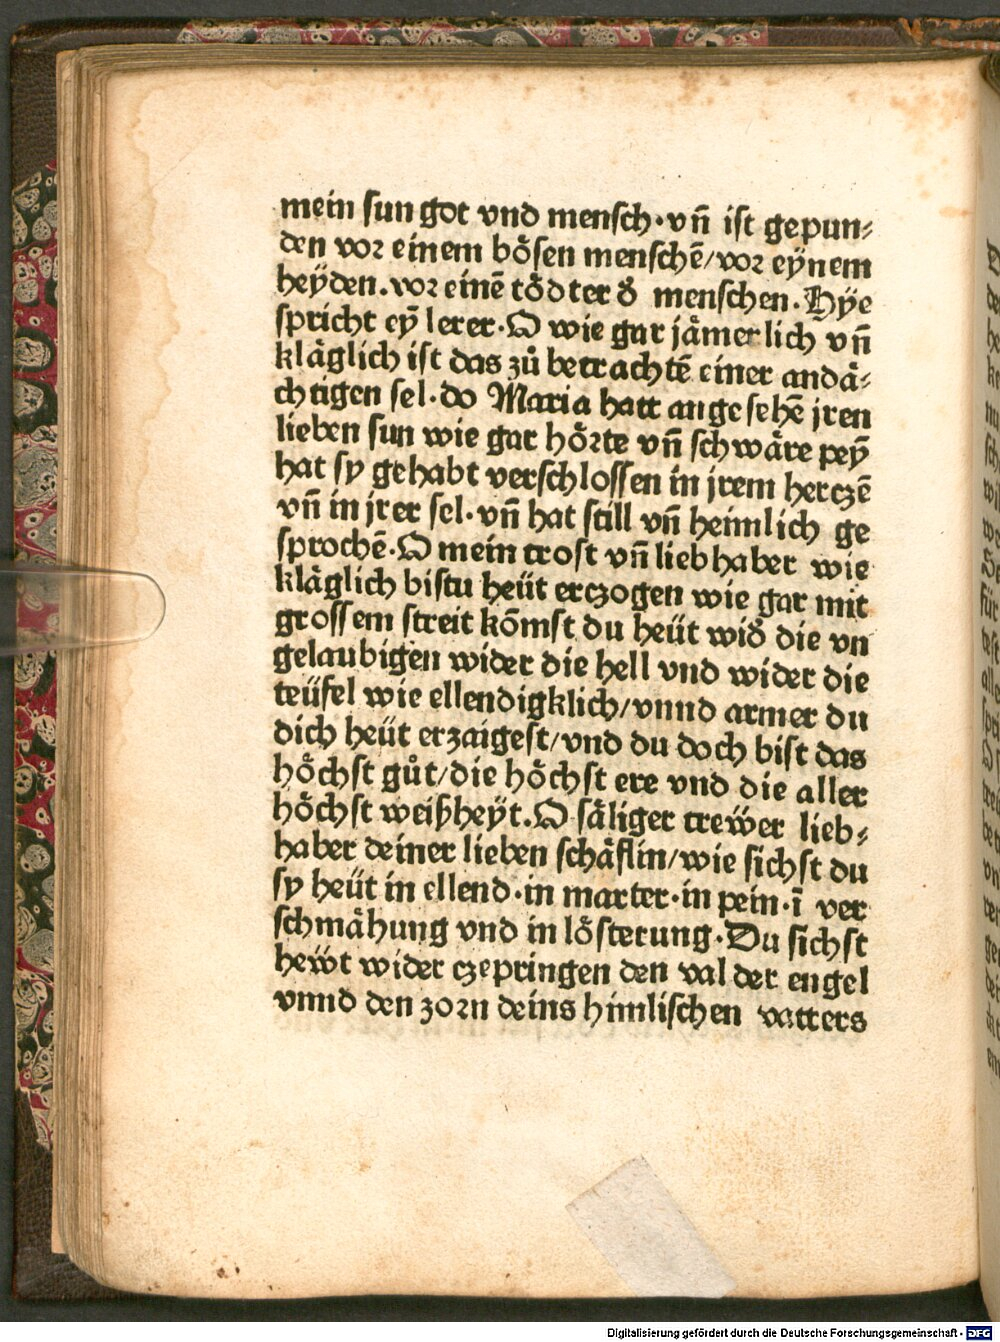 mein sun got vnd mensch·vn̄ ist gepun⸗
den vor einem bösen menschē/vor eÿnem
heÿden.vor einē tödter d̄ menschen.Hÿe
spricht eÿ lerer·O wie gar jämerlich vn̄
kläglich ist das zů betrachtē einer andä⸗
chtigen sel·do Maria hatt angesehē jren
lieben sun wie gar hörte vn̄ schwäre peÿ
hat sy gehabt verschlossen in jrem herczē
vn̄ in jrer sel·vn̄ hat still vn̄ heimlich ge
sprochē·O mein trost vn̄ liebhaber wie
kläglich bistu heüt erczogen wie gar mit
grossem streit kōmst du heüt wid̄ die vn
gelaubigen wider die hell vnd wider die
teüfel wie ellendigklich/vnnd armer du
dich heüt erzaigest/vnd du doch bist das
höchst gůt/die höchst ere vnd die aller
höchst weißheÿt.O säliger trewer lieb⸗
haber deiner lieben schäflin/wie sichst du
sy heüt in ellend·in marter·in pein·ī ver
schmähung vnd in lösterung·Du sichst
hewt wider czepringen den val der engel
vnnd den zorn deins himlischen vatters
Digitalisierung gefördert durch die Deutsche Forschungsgemeinschaft - DFG